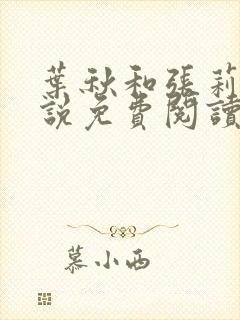 葉秋和張莉
說免費閱讀
慕小西